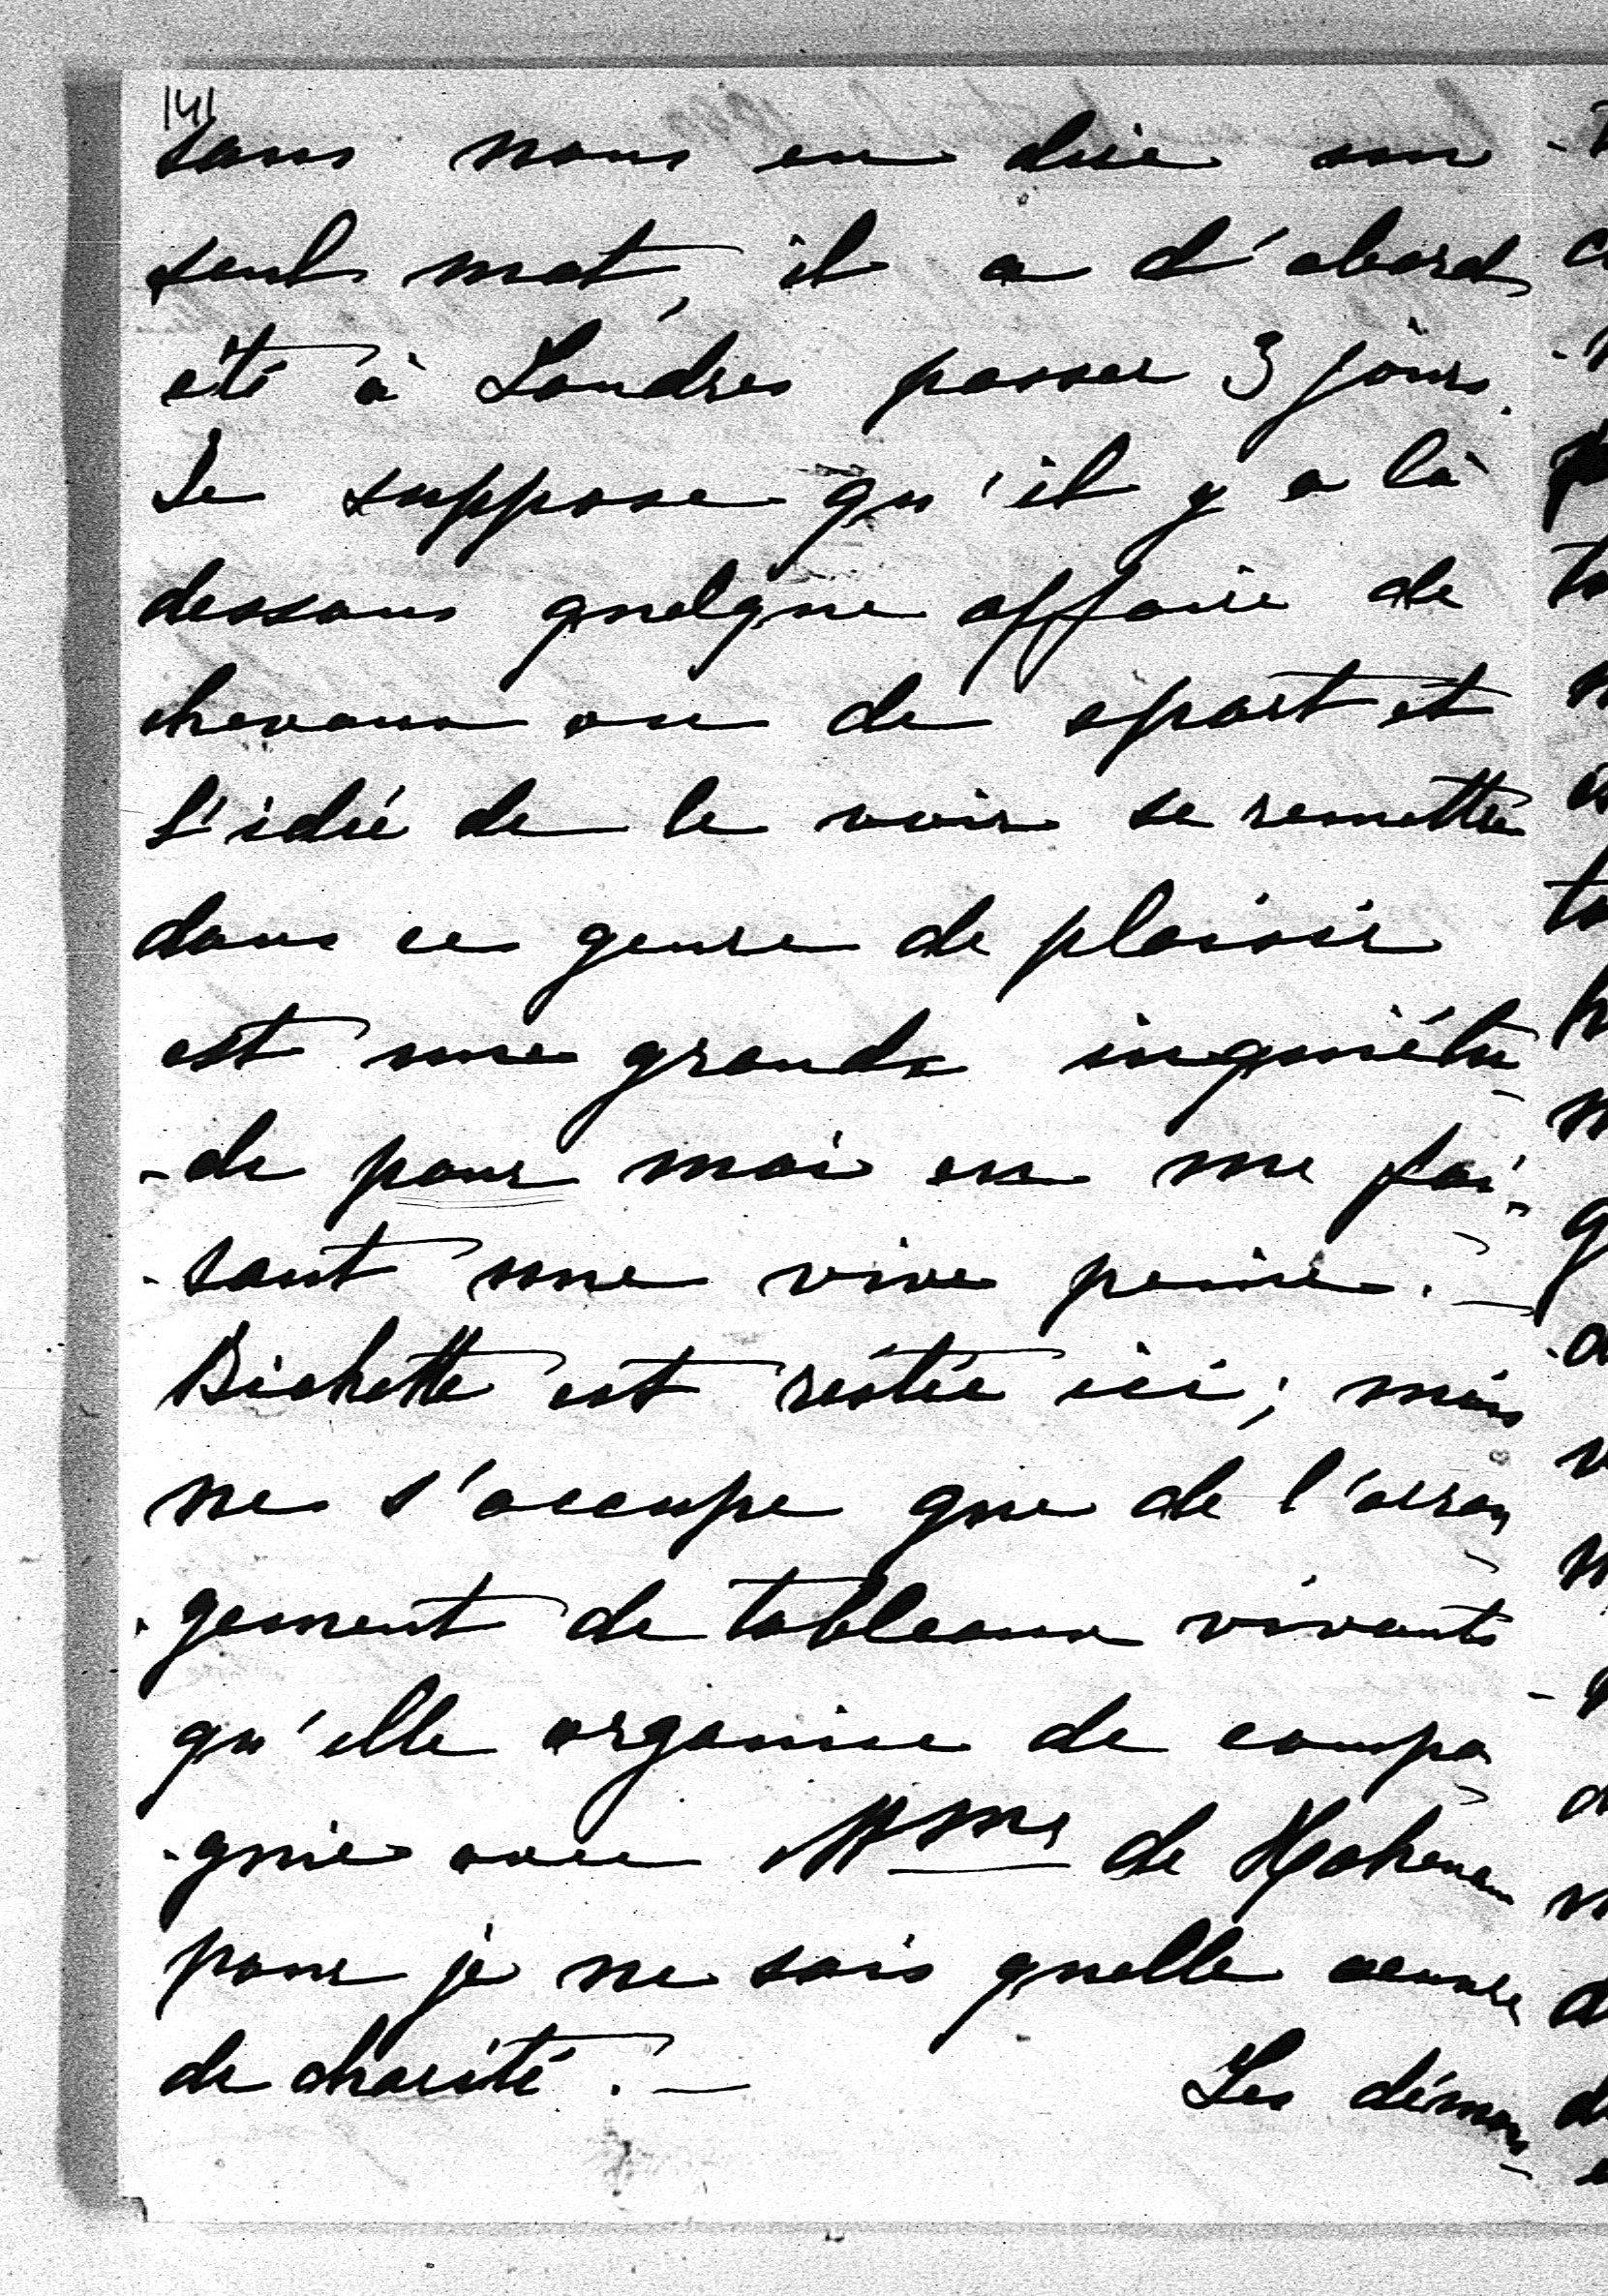 141
sans nous en dire un
seul mot, il a d'abord
été à Londres passer 3 jours.
Je suppose qu'il y a là
dessous quelque affaire de
chevaux ou de sport et
l'idée de le voir se remettre
dans ce genre de plaisir
est une grande inquiétu-
-de pour moi en me fai-
-sant une vive peine. —
Bichette est restée ici; mais
ne s'occupe que de l'arran-
-gement de tableaux vivants
qu'elle organise de compa-
-gnie avec Mme de
pour je ne sais quelle œuvre
de charité. — Les démons-